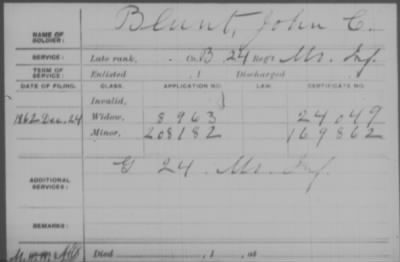 NAME OF SOLDIER: Blunt, John C.
SERVICE: Late rank, Co. B 24 Reg't Inf.
TERM OF SERVICE: Enlisted , 1 Discharged , 1
DATE OF FILING. CLASS. APPLICATION NO. LAW. CERTIFICATE NO.
Invalid,
1862 Dec, 24 Widow, 8963 24049
Minor, 208182 169862
ADDITIONAL SERVICES: G 24 Inf.
REMARKS:
Died , 1 , at